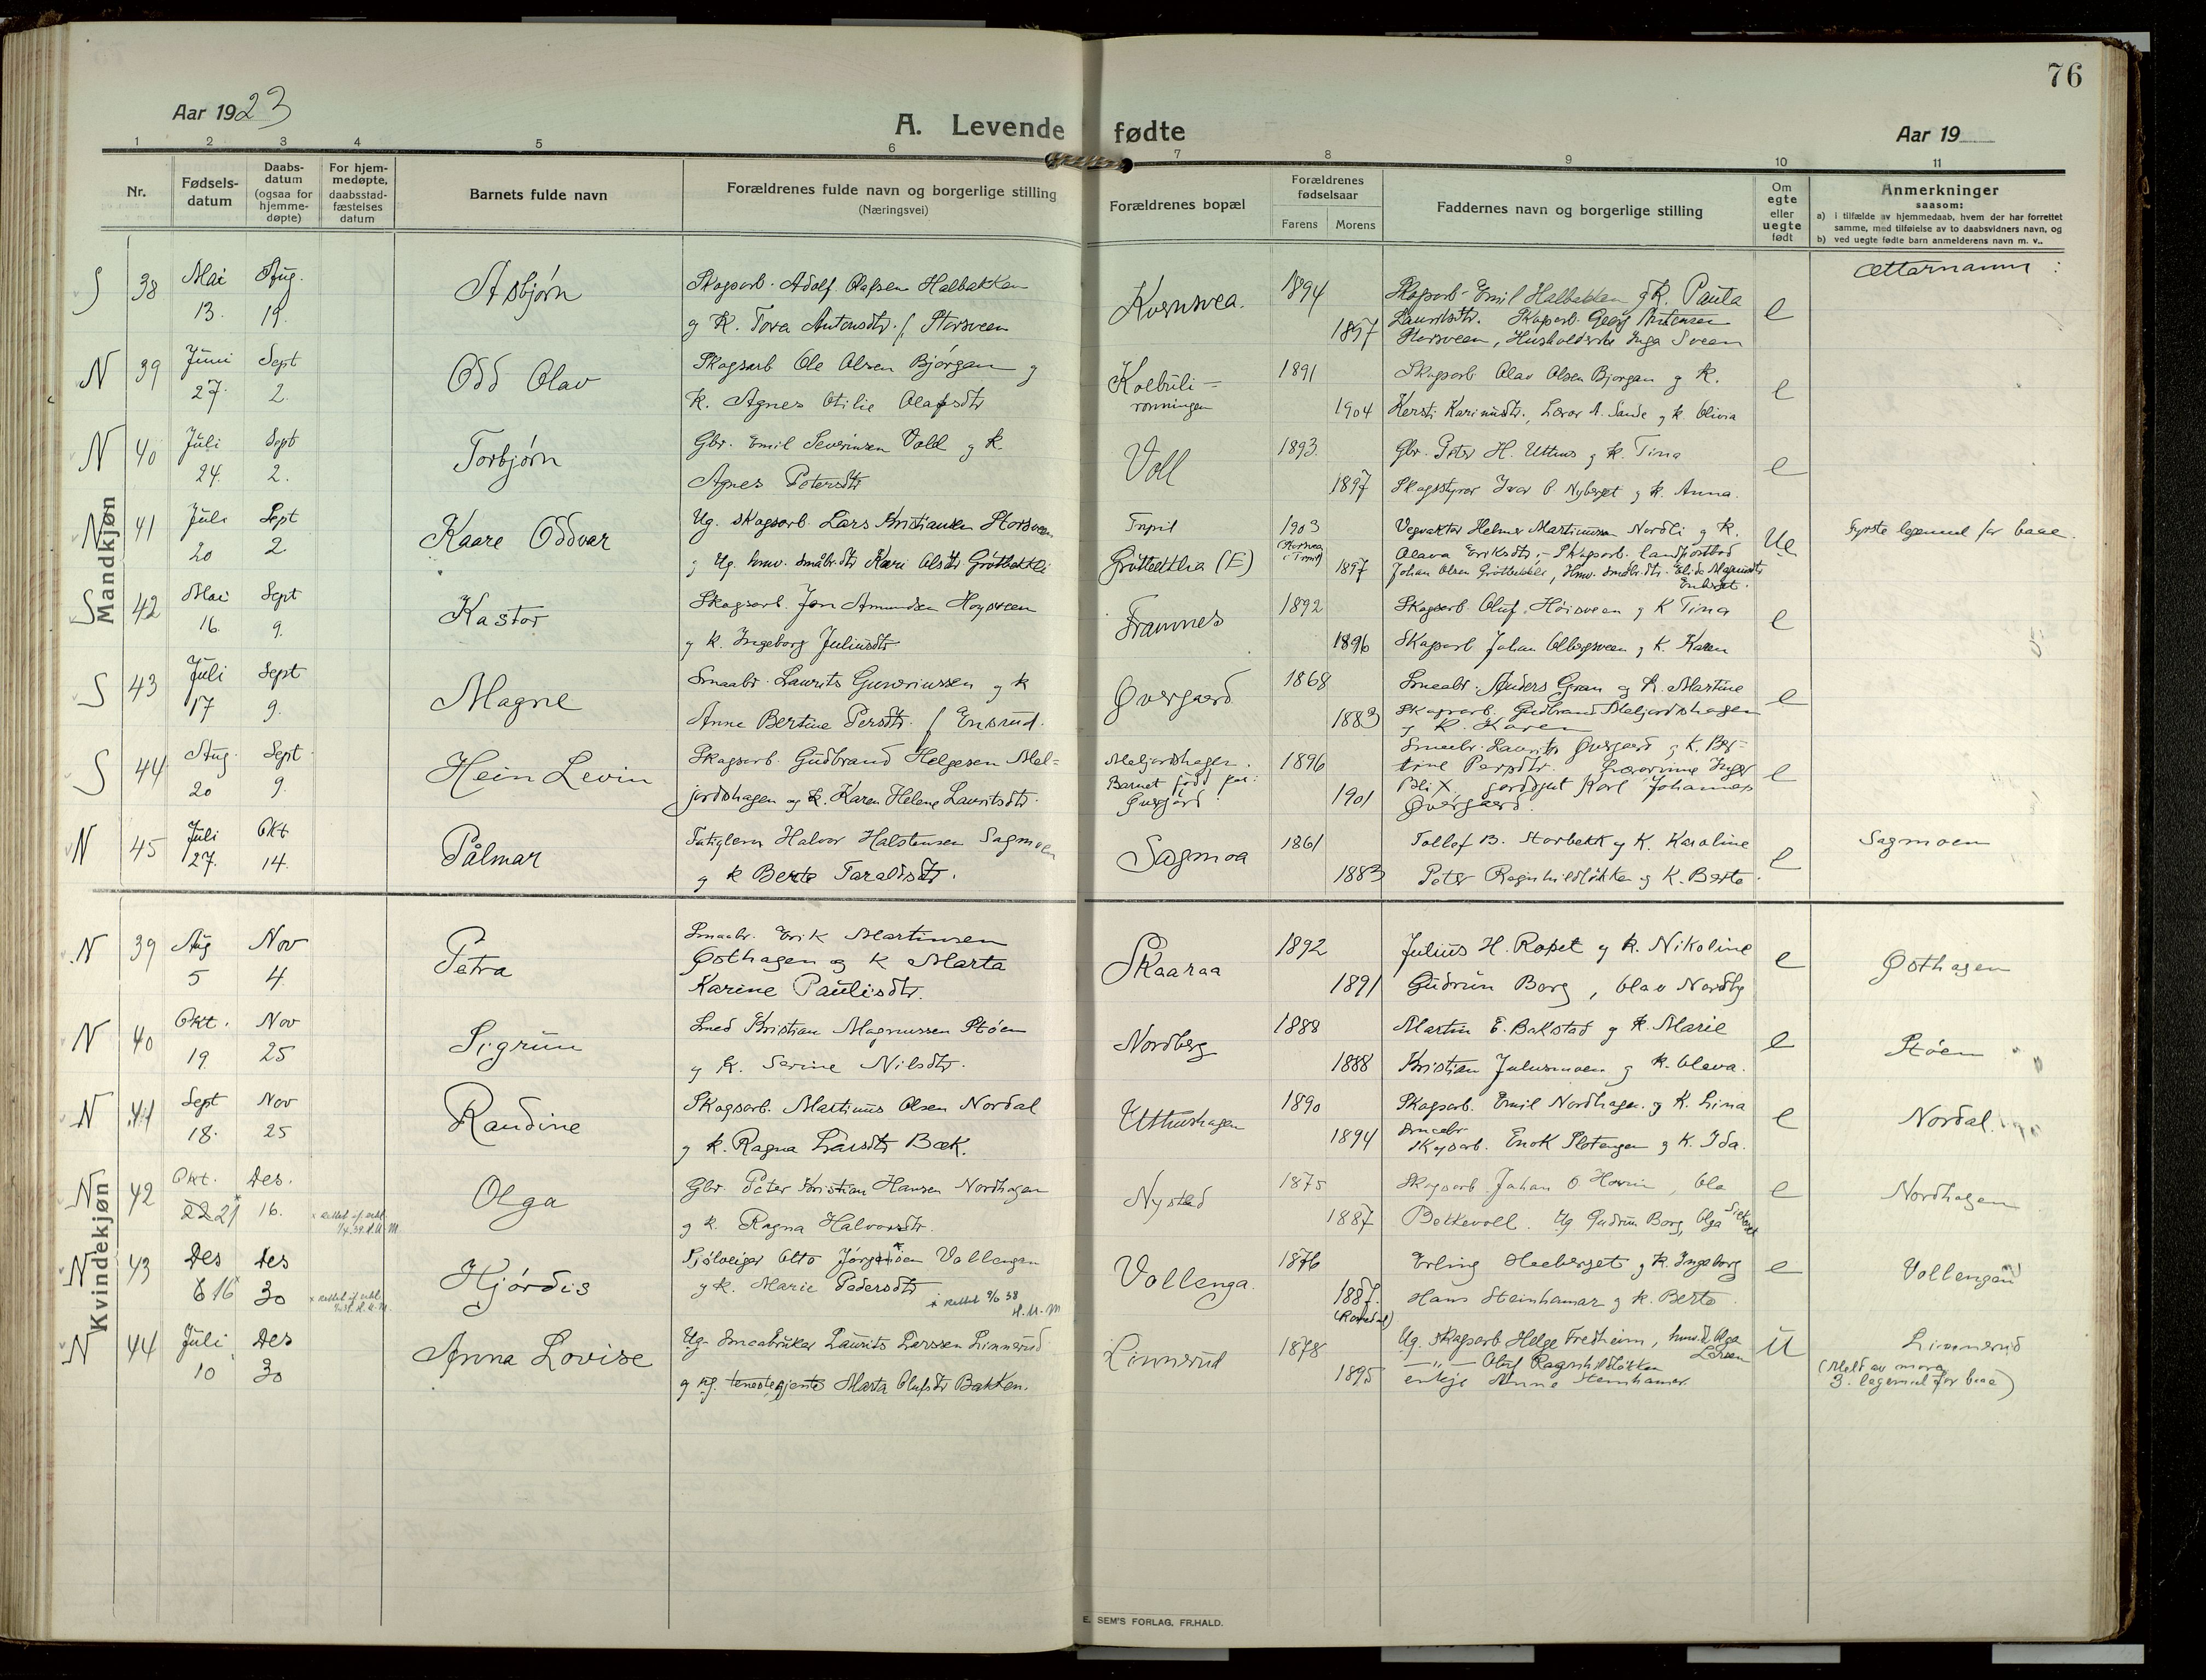 76
Aar 1923
A. Levende fødte
Aar 19
1 2 3 4 5 6 7 8 9 10 11
Nr.
Fødsels-
datum
Daabs-
datum
(ogsaa for
hjemme-
døpte)
For hjem-
medøpte,
daabsstad-
fæstelses
datum
Barnets fulde navn
Forældrenes fulde navn og borgerlige stilling
(Næringsvei)
Forældrenes bopæl
Forældrenes
fødselsaar
Farens Morens
Faddernes navn og borgerlige stilling
Om
egte
eller
uegte
født
Anmerkninger
saasom:
a) i tilfælde av hjemmedaab, hvem der har forrettet
samme, med tilføielse av to daabsvidners navn, og
b) ved uegte fødte barn anmelderens navn m. v..
Ættarnamn:
Mandkjøn
S 38 Mai 13. Aug. 19. Asbjørn
Skogsarb. Adolf Olafsen Halbakken
g K. Tora Antonsdtr. f. Storsveen
Kvernsvea. 1894 1897
Skogsarb. Emil Halbakken g K. Paula
Lauritsdtr. Skogsarb. Georg Antensen
Storsveen, Husholderske Inga Sveen
e
N 39 Juni 27. Sept 2. Odd Olav
Skogsarb Ole Olsen Bjørgan g
K. Agnes Otilie Olafsdtr
Kolbuli-
rønningen 1891 1904
Skogsarb Olav Olsen Bjørgan g K.
Kersti Karinusdtr., Lærar A. Sande g k. Olivia
e
N 40 Juli 24. Sept 2. Torbjørn
Gbr. Emil Severinsen Vold g K.
Agnes Petersdtr
Voll 1893. 1897
Gbr. Peter H. Utthus g K. Tina
Skogsstyrar Ivar O. Nyberget g K. Anna.
e
N 41 Juli 20 Sept 2 Kaare Oddvar
Ug. skogsarb. Lars Kristiansen Storsveen
g Ug. hmv. småbr.dtr Kari Olsdtr Grøtbekkli
Trysil
Grøtbekklia (E) 1903 1897
Vegvakter Helmer Martinussen Nordli g K.
Olava Eriksdtr. - Skogsarb. landpostbod
Johan Olsen Grøtbekkli, Hmv. småbr.dtr. Elida Magnusdtr
Ue
Fyrste legemaal for baae.
S 42 Mai 16. Sept 9. Kastor
Skogsarb. Jon Amundsen Høysveen
g k. Ingeborg Juliusdtr.
Framnes 1892 1896
Skogsarb. Oluf Høisveen g K Tina
Skogsarb Johan Olbergsveen g K. Karen
e
S 43 Juli 17 Sept 9. Magne
Smaabr. Laurits Guneriussen g k
Anne Bertine Persdtr. f Enkrud.
Øvergaard 1868 1883
Smaabr. Anders Gran og K. Martine
Skogsarb. Gudbrand Meljordshagen
g K. Karen
e
S 44 Aug. 20 Sept. 9. Hein Levin
Skogsarb. Gudbrand Helgesen Mel=
jordshagen og K. Karen Helene Lauritsdtr.
Meljordshagen.
Barnet född paa:
Øvergård. 1896 1901
Smaabr. Laurits Øvergaard g K. Ber=
tine Persdtr. Lærarinne Inger
Blix, gardgut Karl Johannes
Øvergaard.
e
N 45 Juli 27. Okt 14. Pålmar
Fatiglem Halvor Halstensen Sagmoen
g k Berte Taraldsdtr.
Sagmoa 1861 1883
Tollof B. Storbekk g K. Karoline
Peter Ragnhildløkken g K. Berte.
e
Sagmoen
Kvindekjøn
N 39 Aug 5 Nov 4. Petra
Smaabr. Erik Martinsen
Østhagen og K Marta
Karine Paulisdtr.
Skaaraa 1892 1891
Julius H. Ropet g k. Nikoline
Gudrun Borg, Olav Nordby
e
Østhagen
N 40 Okt. 19. Nov 25 Sigrun
Smed Kristian Magnussen Støen
g K. Serine Nilsdtr.
Nordberg 1888 1888
Martin E. Bakstad g K. Marie
Kristian Julusmoen g K. Olava.
e
Støen
N 41 Sept 18. Nov 25 Randine
Skogsarb. Martinus Olsen Nordal
g k. Ragna Larsdtr Bæk.
Utthushagen 1890 1894
Skogsarb. Emil Nordhagen g K. Lina
Smaabr
Skogsarb. Enok Slotengen g K. Ida.
e
Nordal.
N 42 Okt. 22 21 Des. 16. Olga
x Rettet af erkl.
Gbr. Peter Kristian Hansen Nordhagen
g k. Ragna Halvorsdtr.
Nystad 1875 1887
Skogsarb. Johan O. Horin, Ola
Bekkevoll. Ug Gudrun Borg, Olga
e
Nordhagen
N 43 Des 6 16 Des 30 Hjørdis
x Rettet af erkl.
Sjølveigar Otto Jørgensen Vollengen
g K. Marie Pedersdtr
x rettet 9/6 38
H. U. M
Vollenga. 1876 1887.
Erling Heeberget g K. Ingeborg
Hans Steinhamar g K. Berte.
e
Vollengen
N 44 Juli 10 Des 30 Anna Lovise
Ug. Smaabruker Laurits Larssen Linnerud
g ug. tenestegjente Marta Olufsdtr Bakken.
Linnerud 1878 1895
Ug. skogsarb Helge Fredheim, hmv. Olga
Larsen
— „ — Oluf Ragnhildløkken
enkje Anne Steinhamar.
U
Linnerud
(Meldt av mora
3. legemaal for baae)
E. SEM'S FORLAG, FR.HALD.